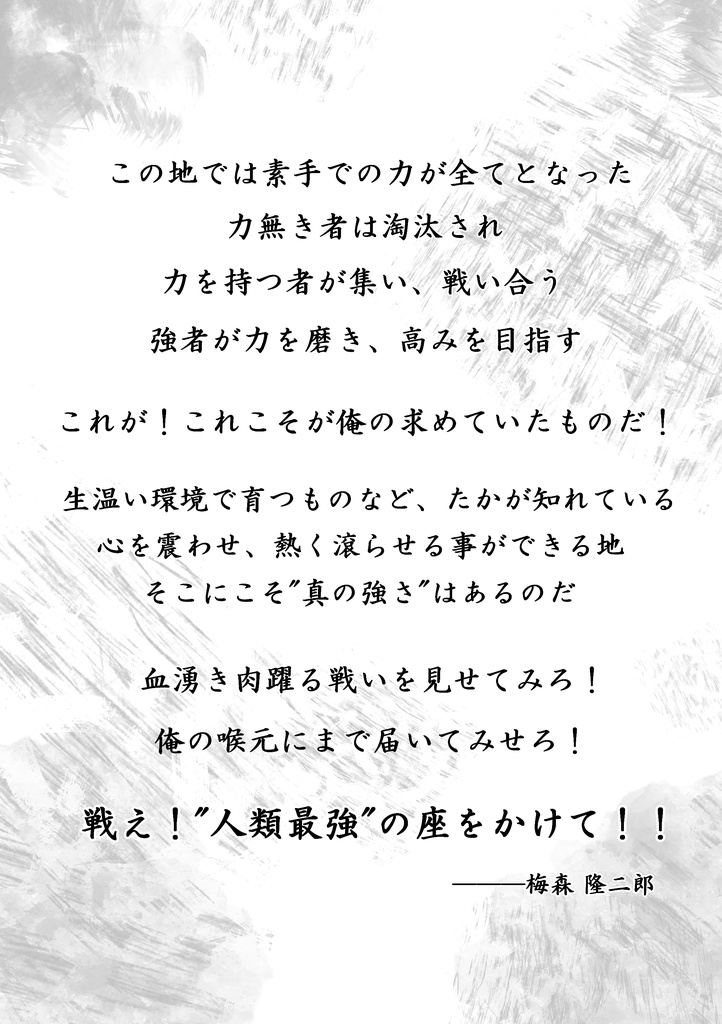 この地では素手での力が全てとなった
力無き者は淘汰され
力を持つ者が集い、戦い合う
強者が力を磨き、高みを目指す
これが！これこそが俺の求めていたものだ！
生温い環境で育つものなど、たかが知れている
心を震わせ、熱く滾らせる事ができる地
そこにこそ"真の強さ"はあるのだ
血湧き肉躍る戦いを見せてみろ！
俺の喉元にまで届いてみせろ！
戦え！"人類最強"の座をかけて！！
———梅森 隆二郎